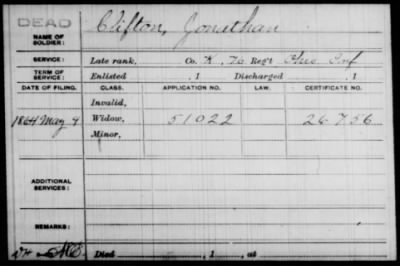 DEAD
NAME OF SOLDIER: Clifton, Jonathan
SERVICE: Late rank, Co. K, 70 Reg't Ohio Inf
TERM OF SERVICE: Enlisted , 1 Discharged , 1
DATE OF FILING. CLASS. APPLICATION NO. LAW. CERTIFICATE NO.
Invalid,
1864 May 4 Widow, 51022 26756
Minor,
ADDITIONAL SERVICES:
REMARKS:
Died , 1 , at